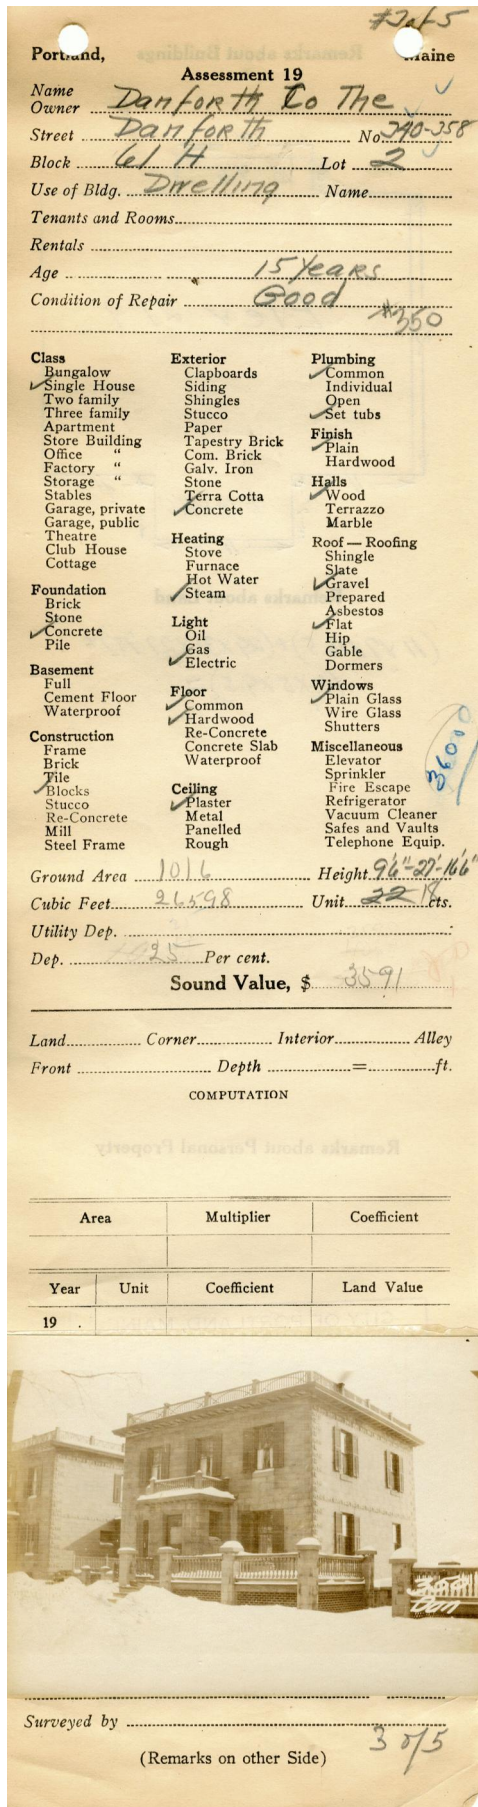 #2 of 5
Portland, Maine
Assessment 19
Name
Owner Danforth Co The
Street Danforth No. 340-358
Block 61 H Lot 2
Use of Bldg. Dwelling Name
Tenants and Rooms
Rentals
Age 15 Years
Condition of Repair Good
$350
Class
Bungalow
Single House
Two family
Three family
Apartment
Store Building
Office "
Factory "
Storage "
Stables
Garage, private
Garage, public
Theatre
Club House
Cottage
Foundation
Brick
Stone
Concrete
Pile
Basement
Full
Cement Floor
Waterproof
Construction
Frame
Brick
Tile
Blocks
Stucco
Re-Concrete
Mill
Steel Frame
Exterior
Clapboards
Siding
Shingles
Stucco
Paper
Tapestry Brick
Com. Brick
Galv. Iron
Stone
Terra Cotta
Concrete
Heating
Stove
Furnace
Hot Water
Steam
Light
Oil
Gas
Electric
Floor
Common
Hardwood
Re-Concrete
Concrete Slab
Waterproof
Ceiling
Plaster
Metal
Panelled
Rough
Plumbing
Common
Individual
Open
Set tubs
Finish
Plain
Hardwood
Halls
Wood
Terrazzo
Marble
Roof — Roofing
Shingle
Slate
Gravel
Prepared
Asbestos
Flat
Hip
Gable
Dormers
Windows
Plain Glass
Wire Glass
Shutters
Miscellaneous
Elevator
Sprinkler
Fire Escape
Refrigerator
Vacuum Cleaner
Safes and Vaults
Telephone Equip.
3600
Ground Area 1016 Height 9'6"-27'-16'6"
Cubic Feet 26598 Unit 22 18 cts.
Utility Dep.
Dep. 25 Per cent.
Sound Value, $ 3591
Land Corner Interior Alley
Front Depth = ft.
COMPUTATION
Area Multiplier Coefficient
Year Unit Coefficient Land Value
19
Dan
Surveyed by
3 of 5
(Remarks on other Side)